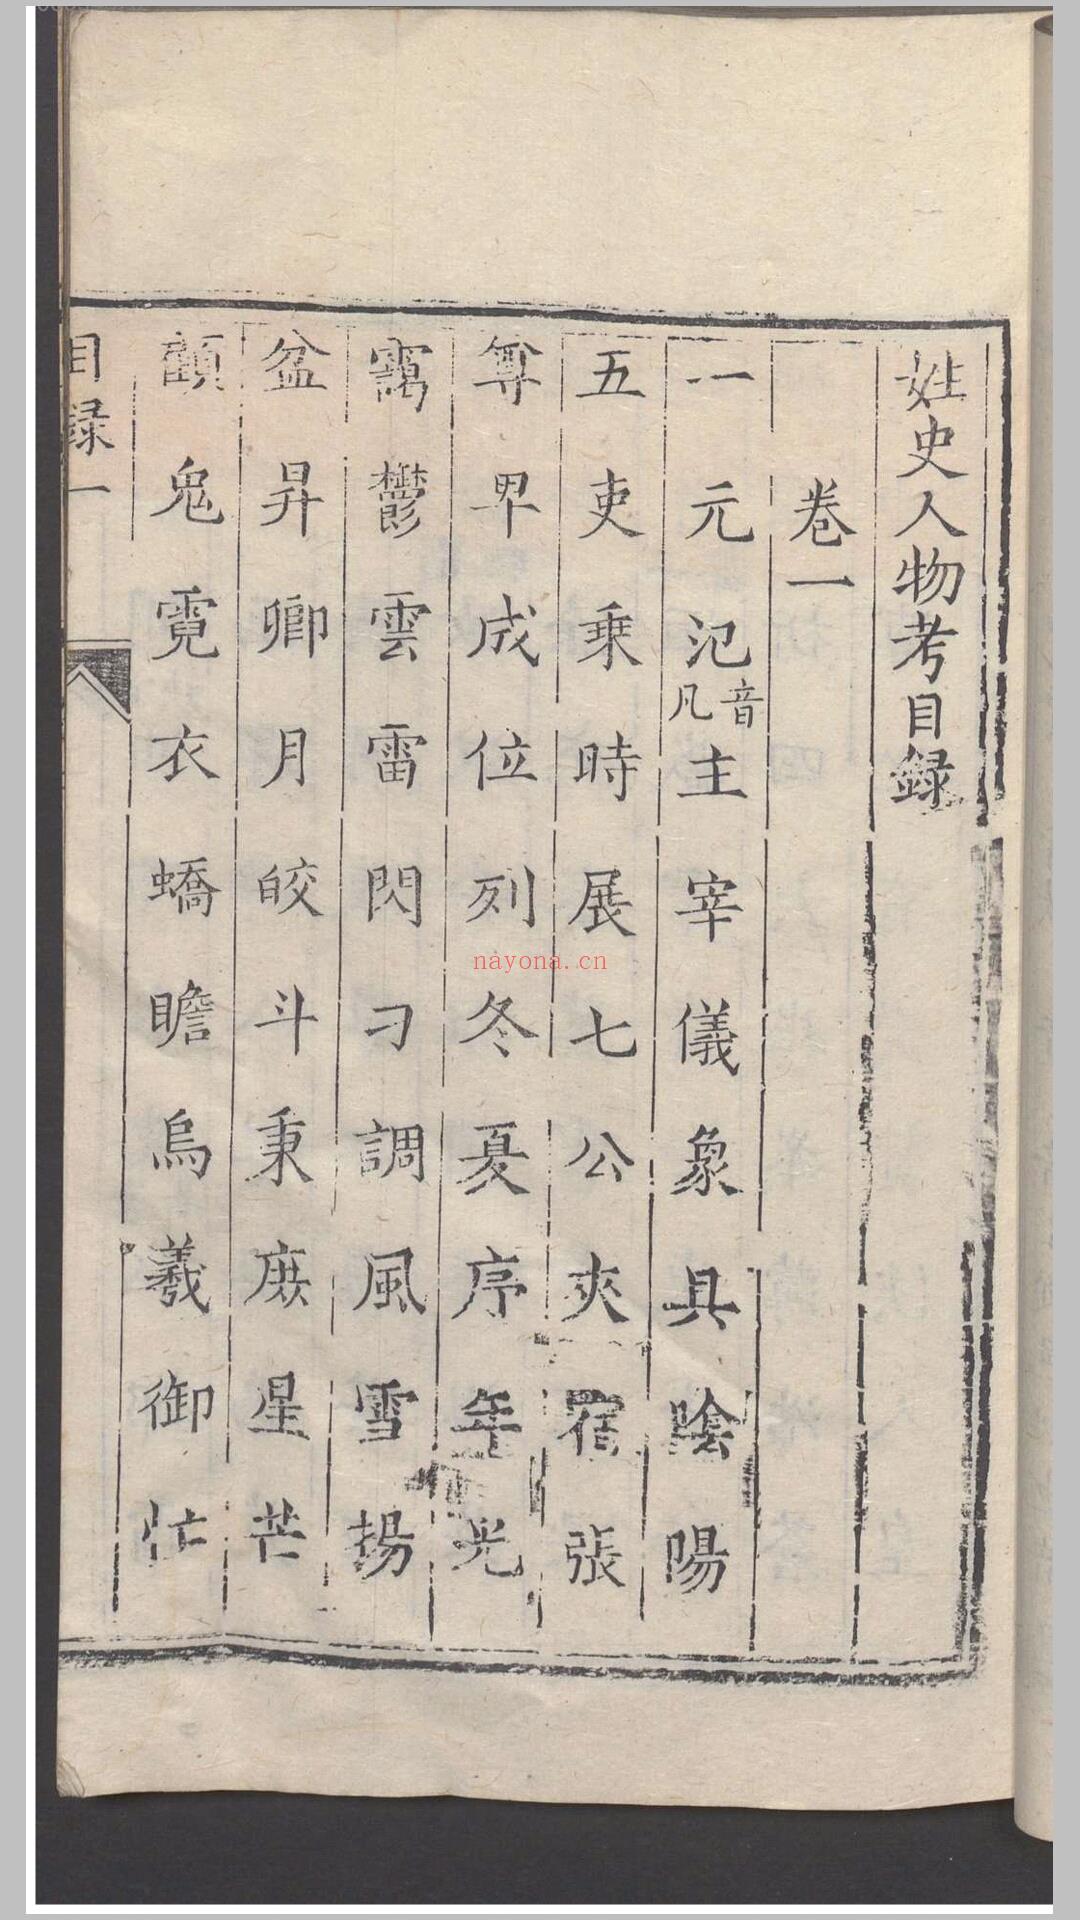 姓史人物考目録
卷一
一元氾音凡主宰儀象具陰陽
五吏乗時展七公夾宿張
尊卑成位列冬夏序年光
靄鬱雲雷閃刁調風雪揚
盆昇卿月皎斗秉庶星芒
顗鬼霓衣蟜瞻烏羲御忙
目録一
nayona.cn